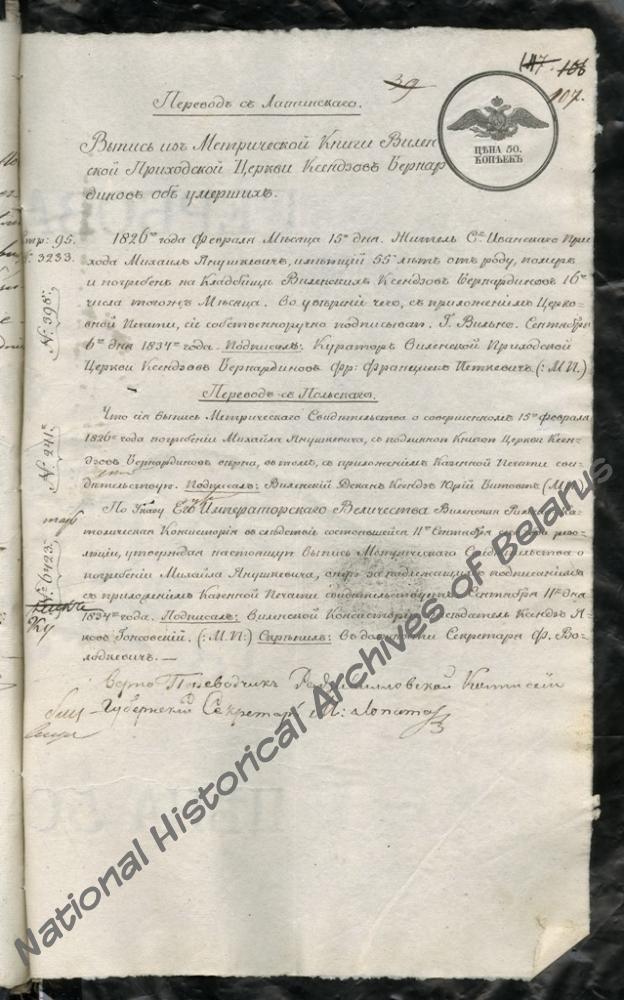 39
147. 106
107.
Переводъ съ Латинскаго.
ЦѢНА 50.
КОПѢЕКЪ
Выпись изъ Метрической Книги Вилен
ской Приходской Церкви Ксендзовъ Бернар
диновъ объ умершихъ.
стр: 95.
№ 3233.
1826го года Февраля Мѣсяца 15го дня. Житель Сго Иванскаго При
хода Михаилъ Янушкевичъ, имѣющій 55 лѣтъ отъ роду, померъ
и погребенъ на Кладбищѣ Виленскихъ Ксендзовъ Бернардиновъ 16го
числа тогожъ Мѣсяца. Во увѣреніе чего, съ приложеніемъ Церко
вной Печати, сіе собственноручно подписываю. Г. Вильно. Сентября
6го дня 1834го года. Подписалъ: Кураторъ Виленской Приходской
Церкви Ксендзовъ Бернардиновъ Фр: Францишекъ Петкевичъ (: М.П.)
№ 395.
Переводъ съ Польскаго.
Что сія выпись Метрическаго Свидѣтельства о совершенномъ 15го Февраля
1826го года погребеніи Михаила Янушкевича, съ подлинною Книгою Церкви Ксен
дзовъ Бернардиновъ вѣрна, въ томъ, съ приложеніемъ Казенной Печати сви
дѣтельствую. Подписалъ: Виленскій Деканъ Ксендзъ Юрій Битовтъ (М
№ 241.
По Указу Его Императорскаго Величества Виленская Римско Ка
толическая Консисторія въ слѣдствіе состоявшейся 11го Сентября резо
люціи, утверждая настоящую Выпись Метрическаго Свидѣтельства о
погребеніи Михаила Янушкевича, оную за надлежащимъ подписаніемъ
съ приложеніемъ Казенной Печати свидѣтельствуетъ Сентября 11го дня
1834го года. Подписалъ: Виленской Консисторіи Предсѣдатель Ксендзъ Як
овъ (: М.П:) Скрѣпилъ: Въ должности Секретаря Ф. Во
лодкевичъ. —
№ 6423.
Переводчикъ Радзивилловской Коммисіи
Губернскій Секретарь М: Лопата
National Historical Archives of Belarus